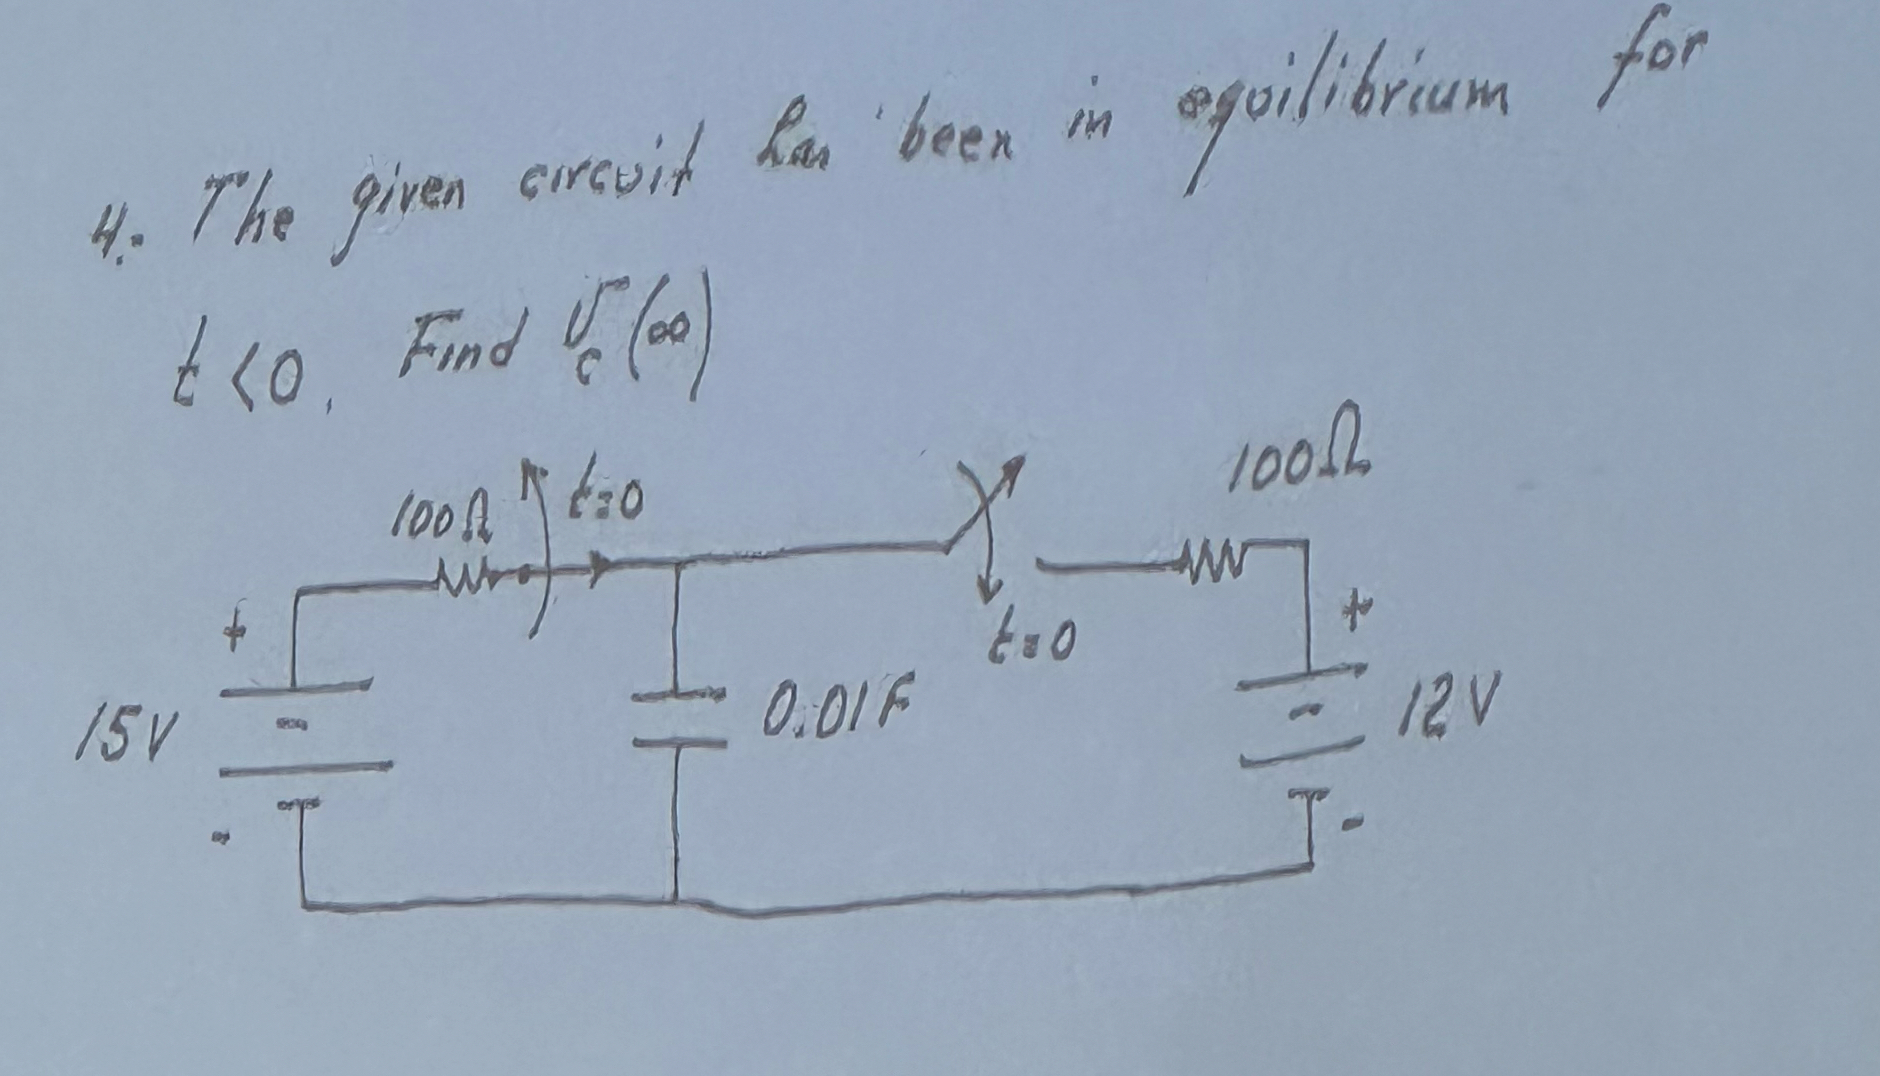 4. The given circuit has been in equilibrium for
t<0. Find v_c(∞)
100Ω t=0 100Ω
+ t=0 +
15V 0.01F 12V
- -